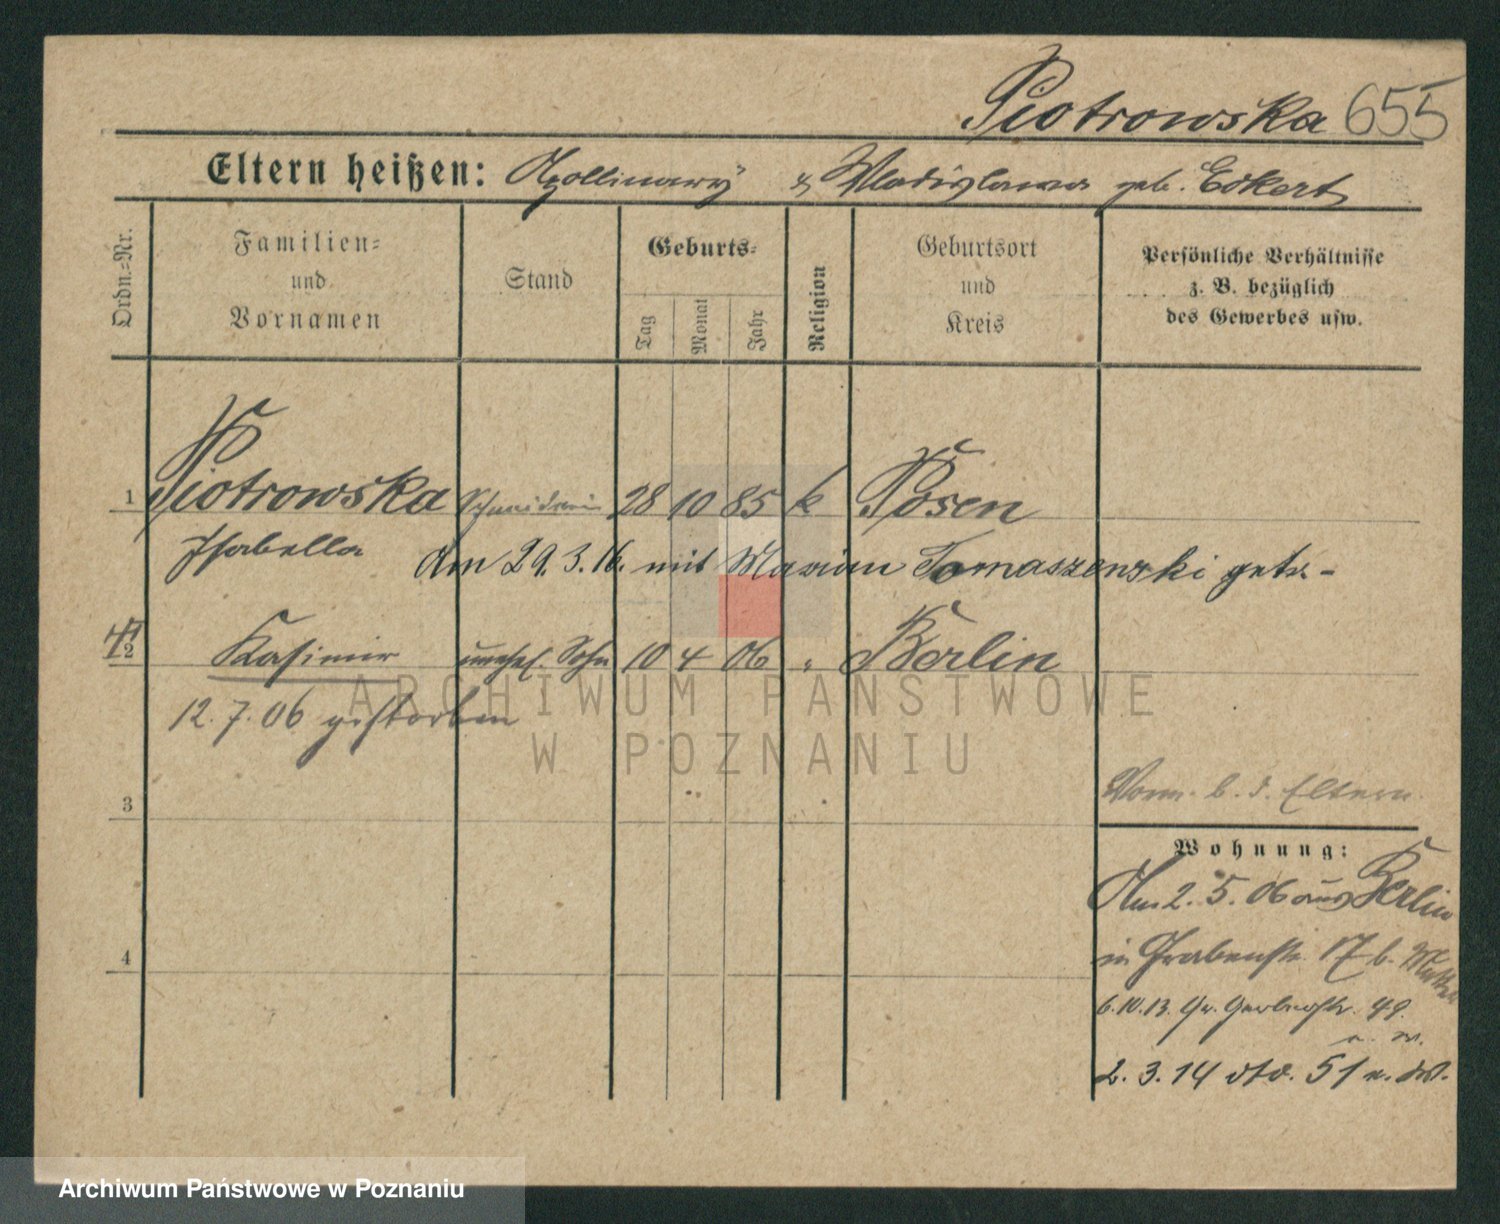 Piotrowska 655
Eltern heißen: Apollinary u. Wladislawa geb. Eckert
Ordn.=Nr.
Familien=
und
Vornamen
Stand
Geburts=
Tag
Monat
Jahr
Religion
Geburtsort
und
Kreis
Persönliche Verhältnisse
z. B. bezüglich
des Gewerbes usw.
1 Piotrowska Schneiderin 28 10 85 k Posen
Isabella
Am 29.3.16. mit Marian Tomaszewski getr.-
2 Kasimir unehel. Sohn 10 4 06 " Berlin
12.7.06 gestorben
ARCHIWUM PAŃSTWOWE
W POZNANIU
3
Vorm. b. d. Eltern.
Wohnung:
Am 2. 5. 06 aus Berlin
4
in Grabenstr. 17 b. Mutter
6.10.13. Gr. Gerberstr. 49.
2. 3. 14 dto. 51
Archiwum Państwowe w Poznaniu